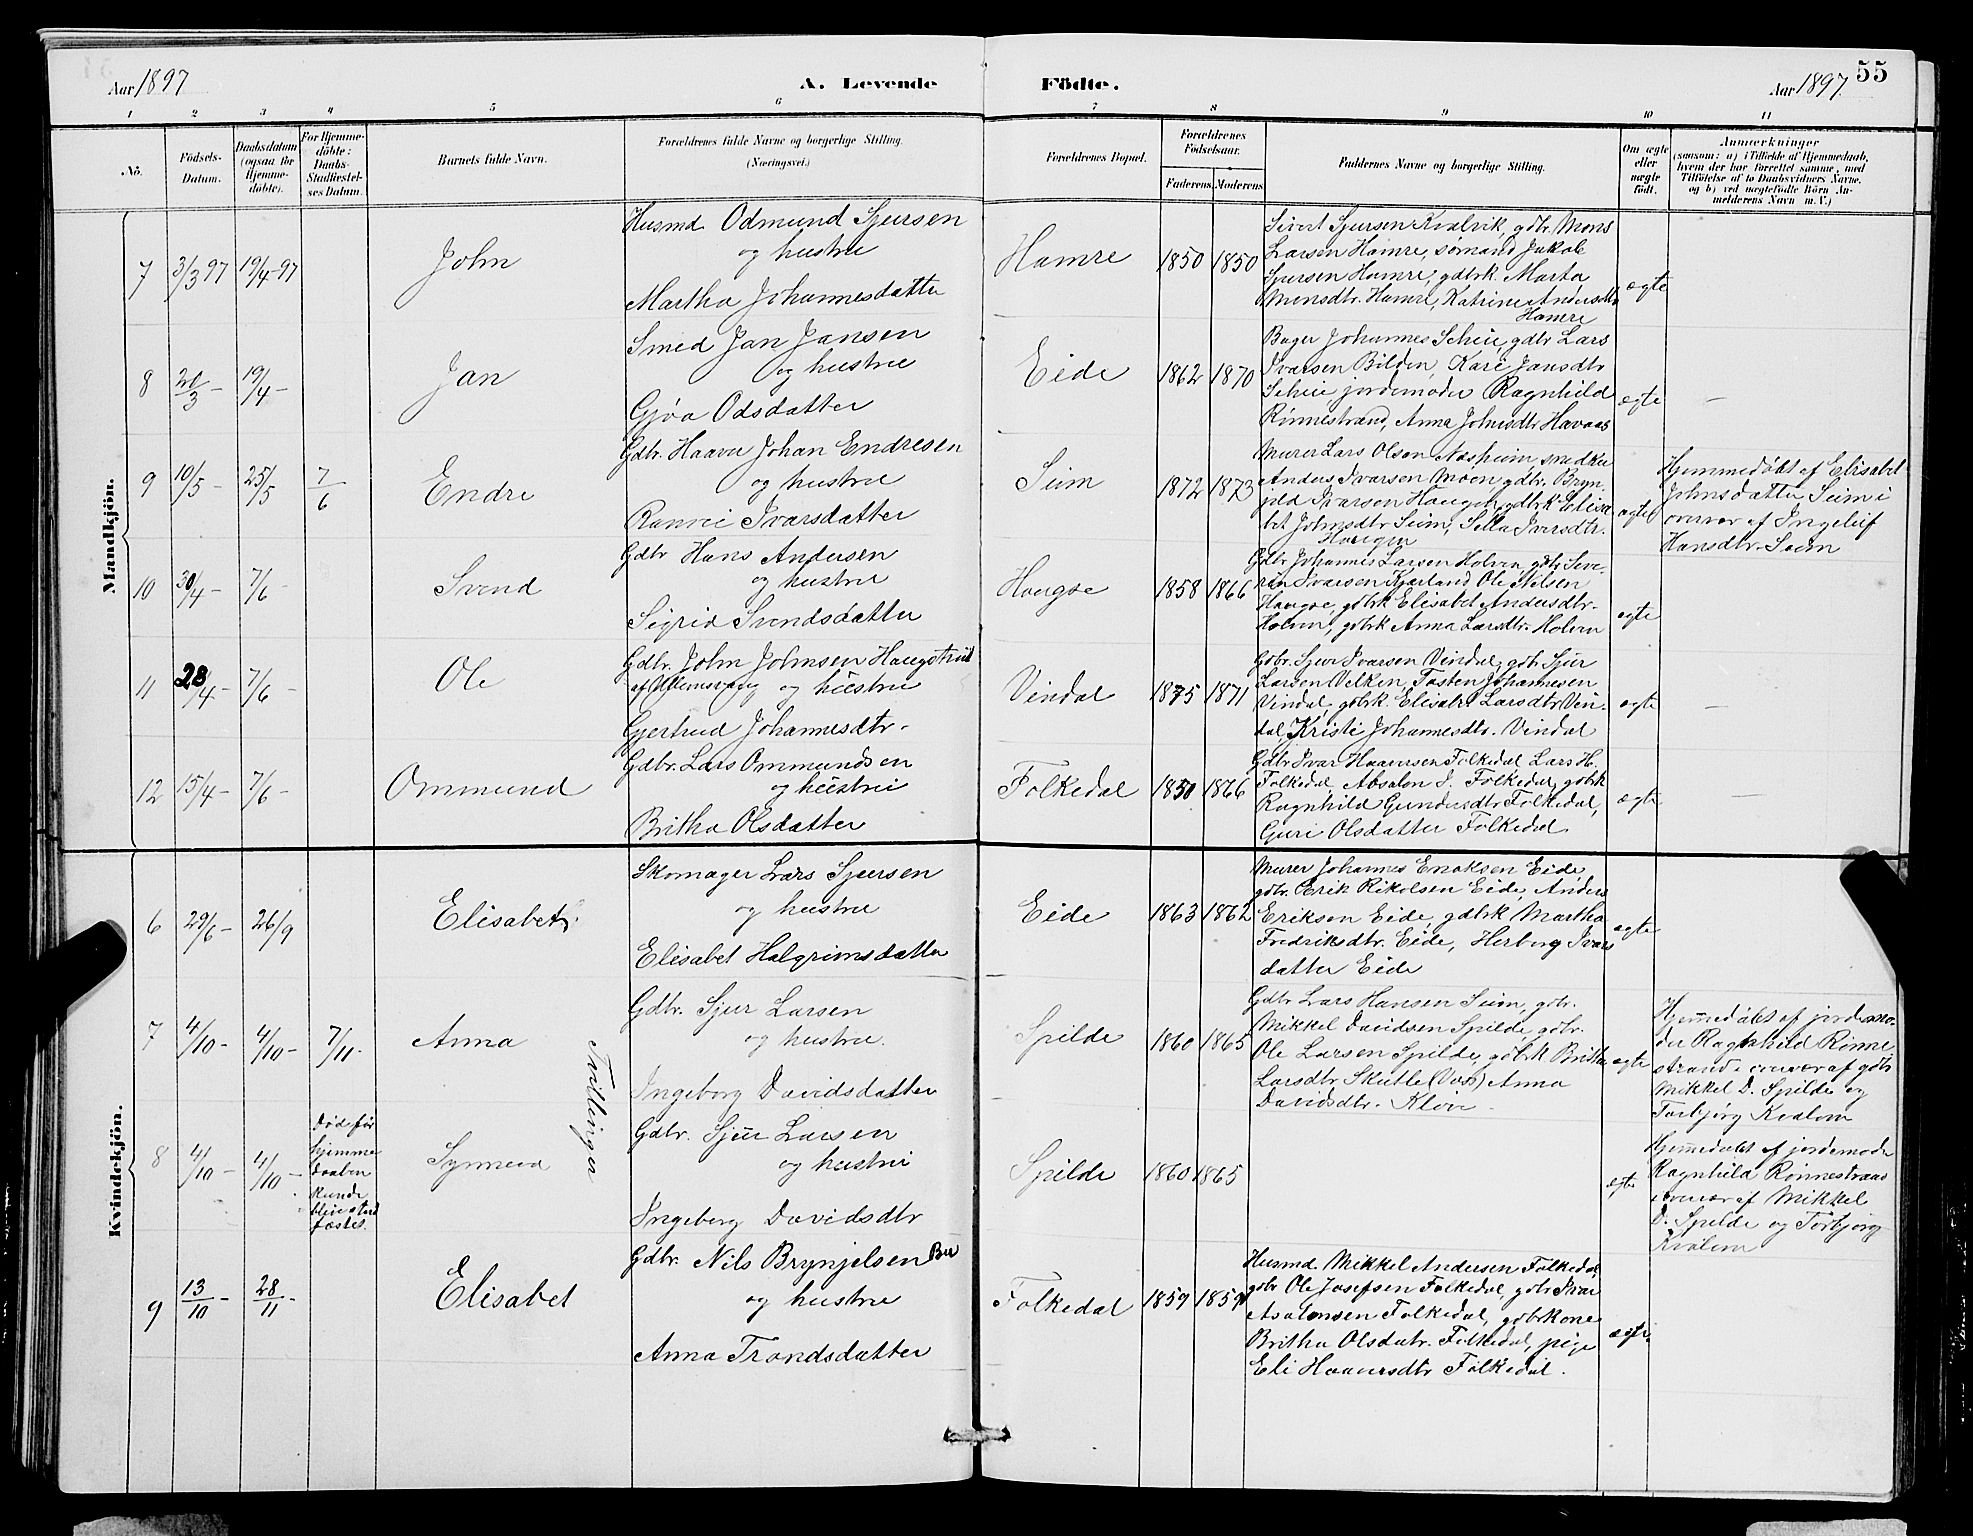 Aar 1897
A. Levende Födte.
Aar 1897.
55
1 2 3 4 5 6 7 8 9 10 11
No.
Födsels-
Datum.
Daabsdatum
(ogsaa for
Hjemme-
döbte).
For Hjemme-
döbte:
Daabs-
Stadfæstel-
ses Datum.
Barnets fulde Navn.
Forældrenes fulde Navne og borgerlige Stilling.
(Næringsvei.)
Forældrenes Bopæl.
Forældrenes
Födselsaar.
Faderens. Moderens.
Faddernes Navne og borgerlige Stilling.
Om ægte
eller
uægte
født.
Anmærkninger
(saasom: a) i Tilfælde af Hjemmedaab,
hvem der har forrettet samme, med
Tilföielse af to Daabsvidners Navne,
og b) ved uægtefödte Börn An-
melderens Navn m. V.)
Mandkjön.
7 3/3 97 19/4-97 John
Husmd Odmund Sjursen
og hustru
Martha Johannesdatter
Hamre 1850 1850
Sivert Sjursen Kvalvik, gdbr. Mons
Larsen Hamre, sømand Jakob
Sjursen Hamre, gdbrk Marta
Monsdtr. Hamre, Katrine Andersdtr
Hamre
ægte
8 /3 - 19/4 - Jan
Smed Jan Jansen
og hustru
Gjøa Odsdatter
Eide 1862 1870
Bager Johannes Scheie, gdbr Lars
Ivarsen Bilden, Kari Jansdtr
Scheie, jordemoder Ragnhild
Rønnestrand, Anna Johnsdtr Havaas
ægte
—
9 10/5 - 25/5 7/6 Endre
Gdbr. Haavar Johan Endresen
og hustru
Ranvei Ivarsdatter
Seim 1872 1873
Murer Lars Olsen Næsheim, snedker
Anders Ivarsen Moen, gdbr. Bryn-
jeld Ivarsen Haugen, gdbrk Elisa-
bet Johnsdtr Seim, Sella Iversdtr.
Haugen
ægte
Hjemmedöbt af Elisabet
Johnsdatter Seim i
overvær af Ingeleif
Hansdtr. Seim
10 30/4 - 7/6 - Svend
Gdbr Hans Andersen
og hustru
Sigrid Svendsdatter
Haugse 1858 1866
Gdbr Johannes Larsen Holven, gdbr Seve-
rin Ivarsen Kjerland Ole Nilsen
Haugse, gdbrk Elisabet Andersdtr.
Holven, gdbrk Anna Larsdtr. Holven
ægte
11 28/4 - 7/6 - Ole
Gdbr. John Johnsen
af og hustru
Gjertrud Johannesdtr.
Vindal 1875 1871
Gdbr. Sjur Ivarsen Vindal, gdbr Sjur
Larsen Velken, Tosten Johannesen
Vindal, gdbrk. Elisabet Larsdtr Vin-
dal, Kristi Johannesdtr. Vindal
ægte
—
12 15/4 - 7/6 - Ommund
Gdbr. Lars Ommundsen
og hustru
Britha Olsdatter
Folkedal 1850 1866
Gdbr Ivar Haavarsen Folkedal, Lars H.
Folkedal, Absalon I. Folkedal, gdbrk
Ragnhild Gundersdtr Folkedal,
Guri Olsdatter Folkedal
ægte
—
Kvindekjön.
6 29/6 - 26/9 Elisabet
Skomager Lars Sjursen
og hustru
Elisabet Halgrimsdatter
Eide 1863 1862
Murer Johannes Eriksen Eide,
gdbr. Erik Rikolsen Eide, Anders
Eriksen Eide, gdbrk Martha
Fredriksdtr. Eide, Herborg Ivars
datter Eide
ægte
7 4/10 - 4/10 - 7/11 - Anna
Tvillinger
Gdbr. Sjur Larsen
og hustru.
Ingeborg Davidsdatter
Spilde 1860 1865
Gdbr Lars Hansen Seim, gdbr.
Mikkel Davidsen Spilde, gdbr.
Ole Larsen Spilde, gdbrk Britha
Larsdtr. Skutle (Voss) Anna
Davidsdtr. Kløve.
ægte
Hjemmedöbt af jordemo-
der Ragnhild Rønne
strand i overvær af gdbr
Mikkel D. Spilde og
Torbjørg Kvalem
8 4/10 - 4/10 -
Døde før
hjemme
daaben
kunde
blive stad
fæstes.
Synneva
Gdbr. Sjur Larsen
og hustru
Ingeborg Davidsdtr
Spilde 1860 1865
ægte
Hjemmedöbt af jordemoder
Ragnhild Rønnestrand
i overvær af Mikkel
D. Spilde og Torbjørg
Kvalem
9 13/10 - 28/11 - Elisabet
Gdbr. Nils Brynjelsen Bu
og hustru
Anna Trondsdatter
Folkedal 1859 1859
Husmd Mikkel Andersen Folkedal,
gdbr Ole Josefsen Folkedal, gdbr Ivar
Asalonsen Folkedal, gdbrkone
Britha Olsdatr. Folkedal, pige
Eli Haavarsdtr Folkedal.
ægte